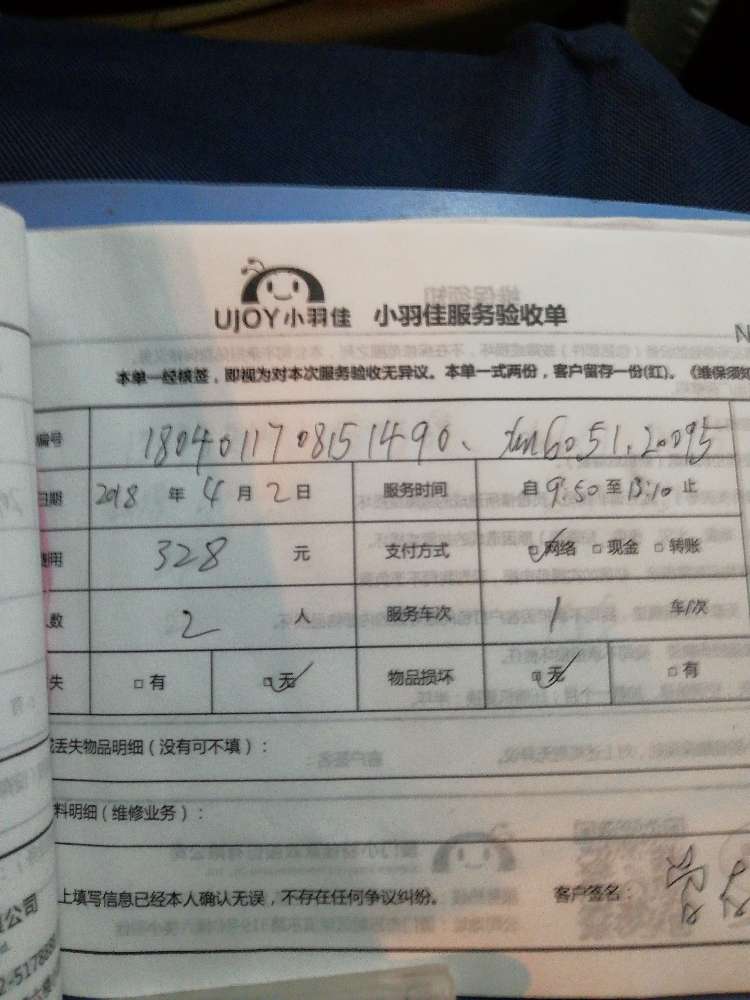 UJOY小羽佳 小羽佳服务验收单
N
本单一经核签，即视为对本次服务验收无异议。本单一式两份，客户留存一份(红)。《维保须知
编号 1804011708151490、
日期 2018 年 4 月 2 日 服务时间 自 9:50 至 13:10 止
费用 328 元 支付方式 网络 现金 转账
数 2 人 服务车次 1 车/次
失 有 无 物品损坏 无 有
丢失物品明细（没有可不填）：
料明细（维修业务）：
上填写信息已经本人确认无误，不存在任何争议纠纷。 客户签名：
公司
2-517888